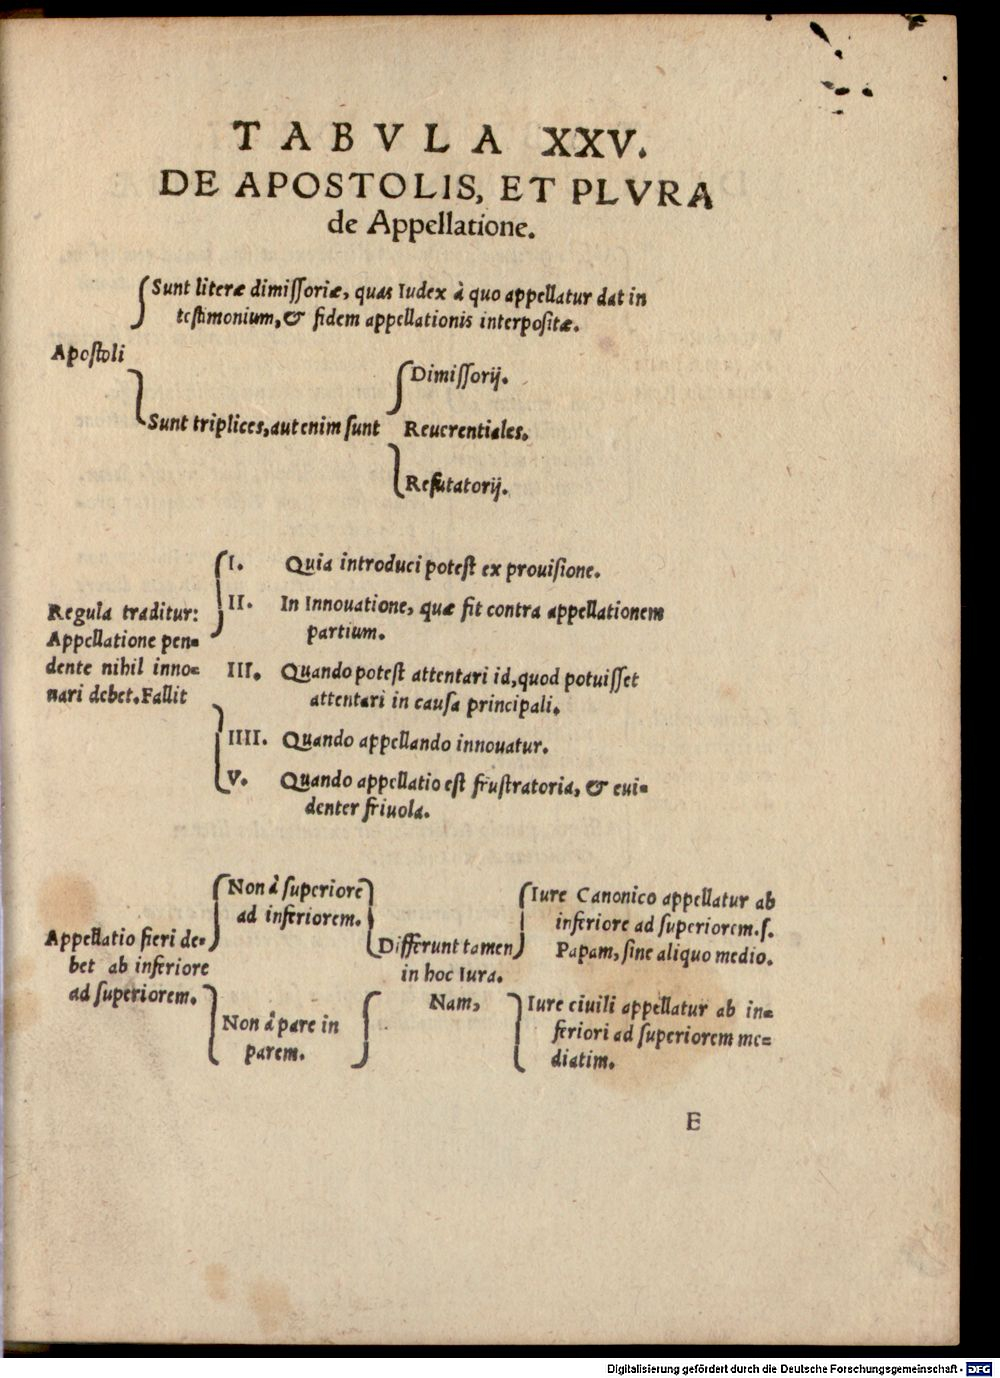 TABVLA XXV.
DE APOSTOLIS, ET PLVRA
de Appellatione.
Sunt literæ dimiſſoriæ, quas Iudex à quo appellatur dat in
teſtimonium, & fidem appellationis interpoſitæ.
Apoſtoli
Dimiſſorij.
Sunt triplices, aut enim ſunt
Reuerentiales.
Refutatorij.
I. Quia introduci poteſt ex prouiſione.
II. In Innouatione, quæ fit contra appellationem
partium.
Regula traditur:
Appellatione pen=
dente nihil inno=
nari debet. Fallit
III. Quando poteſt attentari id, quod potuiſſet
attentari in cauſa principali.
IIII. Quando appellando innouatur.
V. Quando appellatio eſt fruſtratoria, & eui=
denter friuola.
Appellatio fieri de=
bet ab inferiore
ad ſuperiorem.
Non à ſuperiore
ad inferiorem.
Non à pare in
parem.
Differunt tamen
in hoc Iura.
Nam,
Iure Canonico appellatur ab
inferiore ad ſuperiorem. ſ.
Papam, ſine aliquo medio.
Iure ciuili appellatur ab in=
feriori ad ſuperiorem me=
diatim.
E
Digitalisierung gefördert durch die Deutsche Forschungsgemeinschaft - DFG